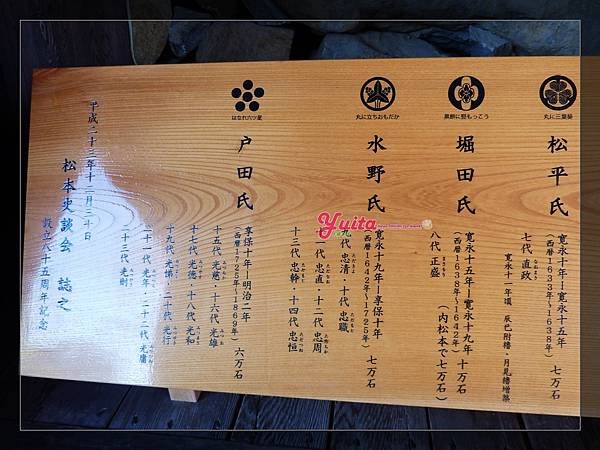 丸に三葉葵
松平氏
寛永十年ー寛永十五年
(西暦1633年〜1638年) 七万石
七代 直政
寛永十一年頃 辰巳附櫓・月見櫓増築
黒餅に竪もっこう
堀田氏
寛永十五年ー寛永十九年 十万石
(西暦1638年〜1642年) (内松本で七万石)
八代 正盛
丸に立ちおもだか
水野氏
寛永十九年ー享保十年
(西暦1642年〜1725年) 七万石
九代 忠清・十代 忠職
十一代 忠直・十二代 忠周
十三代 忠幹・十四代 忠恒
はなれ六ツ星
戸田氏
享保十年ー明治二年
(西暦1725年〜1869年) 六万石
十五代 光慈・十六代 光雄
十七代 光徳・十八代 光和
十九代 光悌・二十代 光行
二十一代 光年・二十二代 光庸
二十三代 光則
平成二十三年十二月二十日
松本史談会 誌之
設立八十五周年記念
Yuita